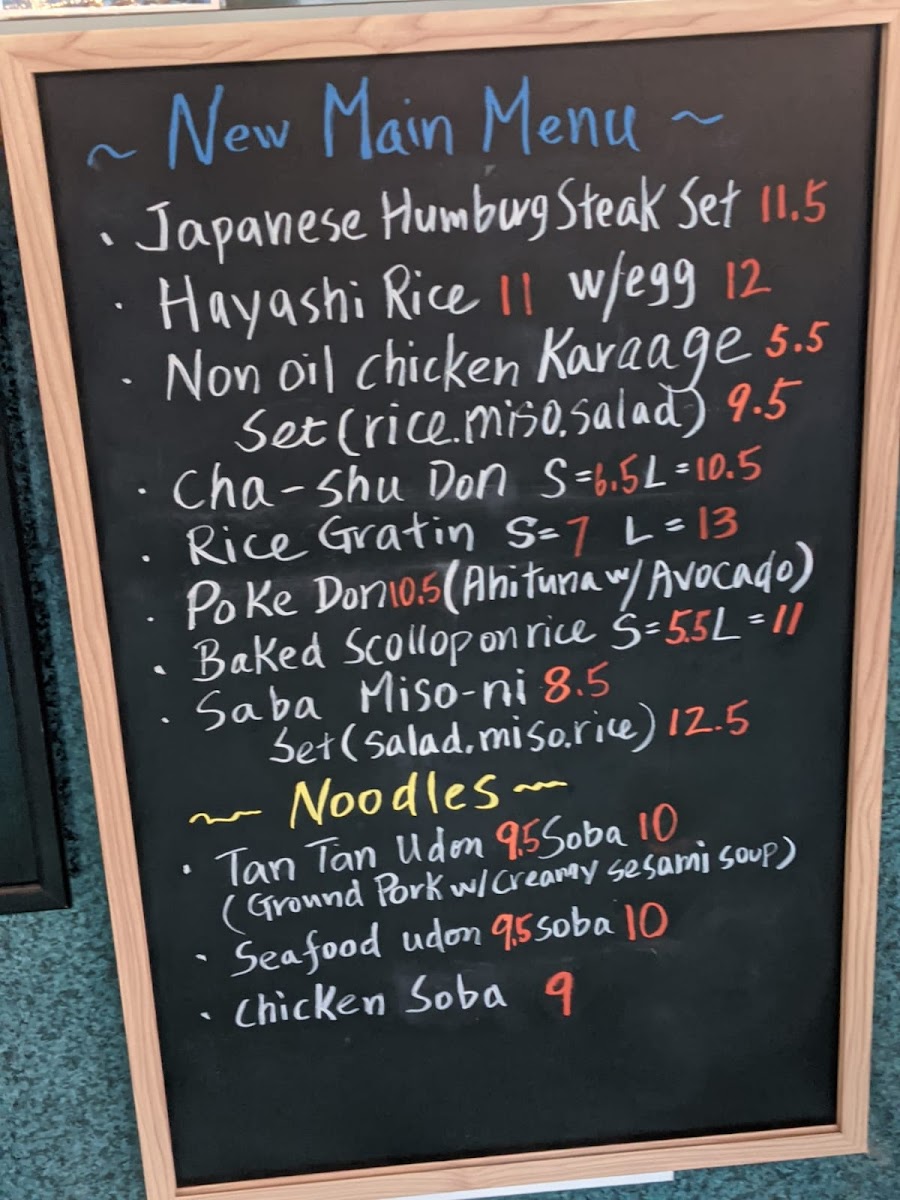 ~ New Main Menu ~
· Japanese Humburg Steak Set 11.5
· Hayashi Rice 11 w/egg 12
· Non oil chicken Karaage 5.5
Set (rice.miso.salad) 9.5
· Cha-shu Don S=6.5 L=10.5
· Rice Gratin S=7 L=13
· Poke Don 10.5 (Ahi tuna w/ Avocado)
· Baked Scollop on rice S=5.5 L=11
· Saba Miso-ni 8.5
Set (salad.miso.rice) 12.5
~ Noodles ~
· Tan Tan Udon 9.5 Soba 10
(Ground Pork w/ creamy sesami soup)
· Seafood udon 9.5 soba 10
· Chicken Soba 9